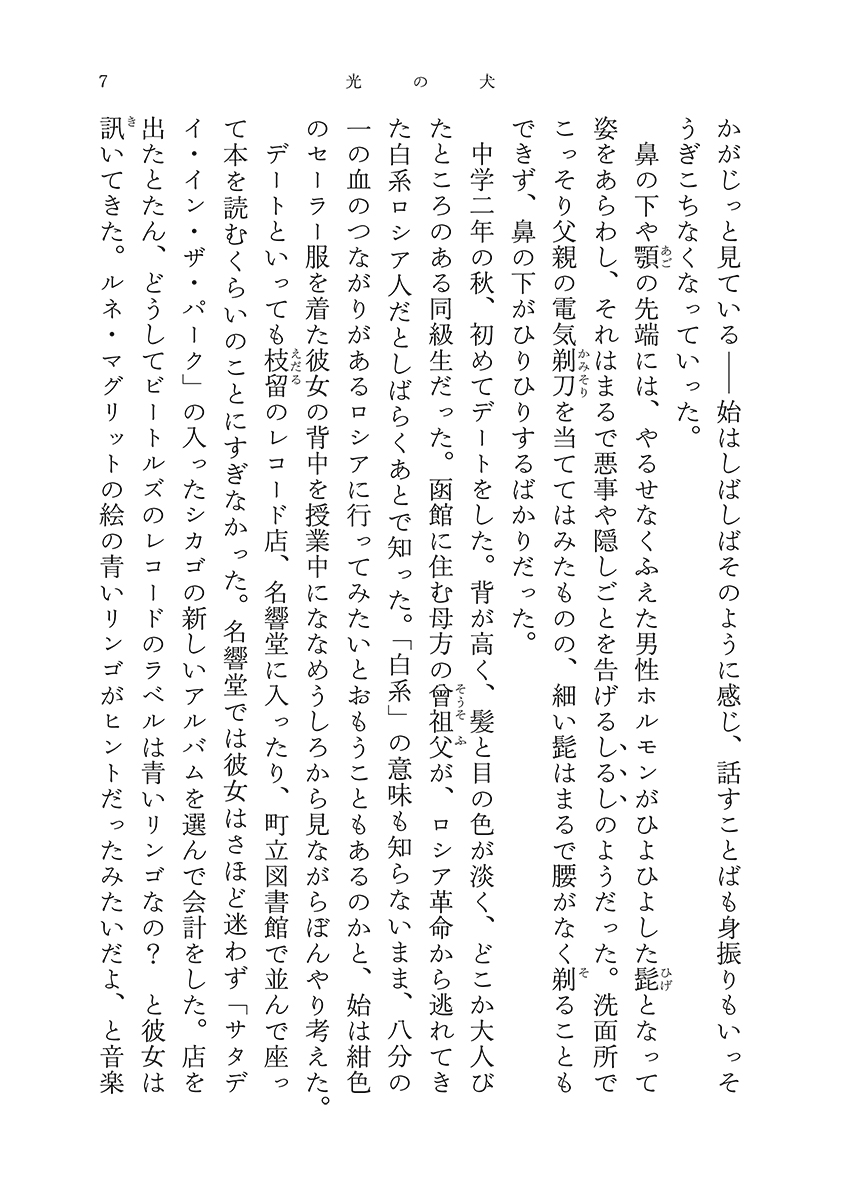 7
光の犬
かがじっと見ている――始はしばしばそのように感じ、話すことばも身振りもいっそ
うぎこちなくなっていった。
鼻の下や顎の先端には、やるせなくふえた男性ホルモンがひよひよした髭となって
姿をあらわし、それはまるで悪事や隠しごとを告げるしるしのようだった。洗面所で
こっそり父親の電気剃刀を当ててはみたものの、細い髭はまるで腰がなく剃ることも
できず、鼻の下がひりひりするばかりだった。
中学二年の秋、初めてデートをした。背が高く、髪と目の色が淡く、どこか大人び
たところのある同級生だった。函館に住む母方の曾祖父が、ロシア革命から逃れてき
た白系ロシア人だとしばらくあとで知った。「白系」の意味も知らないまま、八分の
一の血のつながりがあるロシアに行ってみたいとおもうこともあるのかと、始は紺色
のセーラー服を着た彼女の背中を授業中にななめうしろから見ながらぼんやり考えた。
デートといっても枝留のレコード店、名響堂に入ったり、町立図書館で並んで座っ
て本を読むくらいのことにすぎなかった。名響堂では彼女はさほど迷わず「サタデ
イ・イン・ザ・パーク」の入ったシカゴの新しいアルバムを選んで会計をした。店を
出たとたん、どうしてビートルズのレコードのラベルは青いリンゴなの？　と彼女は
訊いてきた。ルネ・マグリットの絵の青いリンゴがヒントだったみたいだよ、と音楽